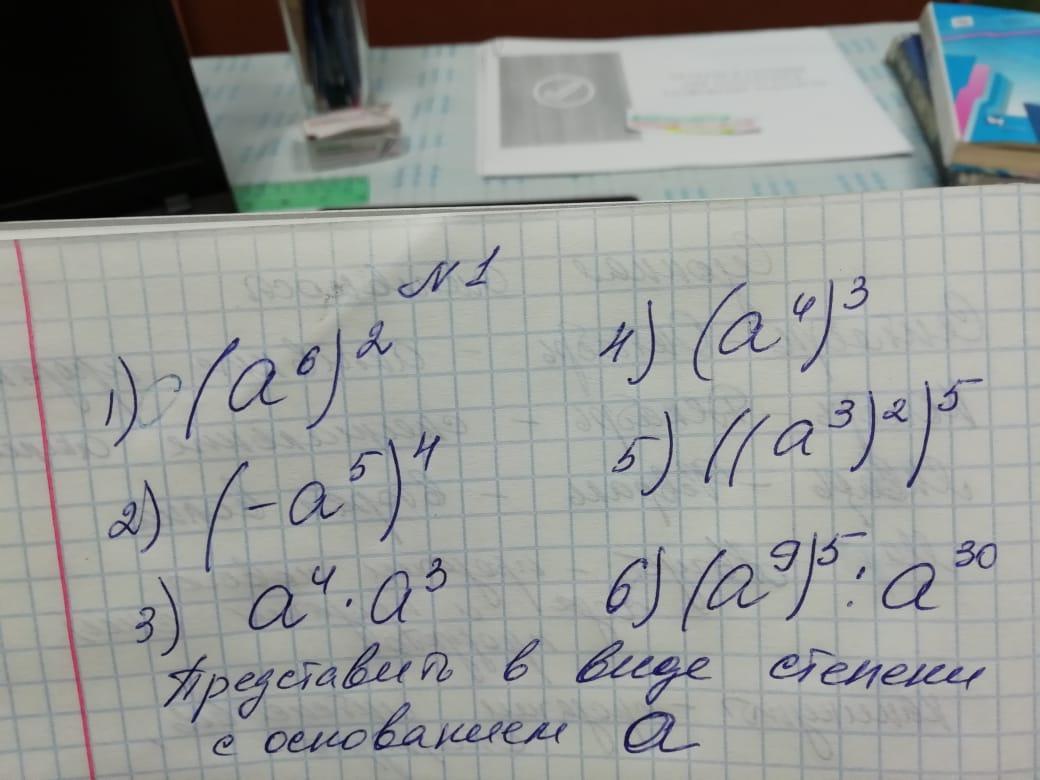 №1
1) (a⁶)²
2) (-a⁵)⁴
3) a⁴·a³
4) (a⁴)³
5) ((a³)²)⁵
6) (a⁹)⁵ : a³⁰
Представить в виде степени
с основанием a